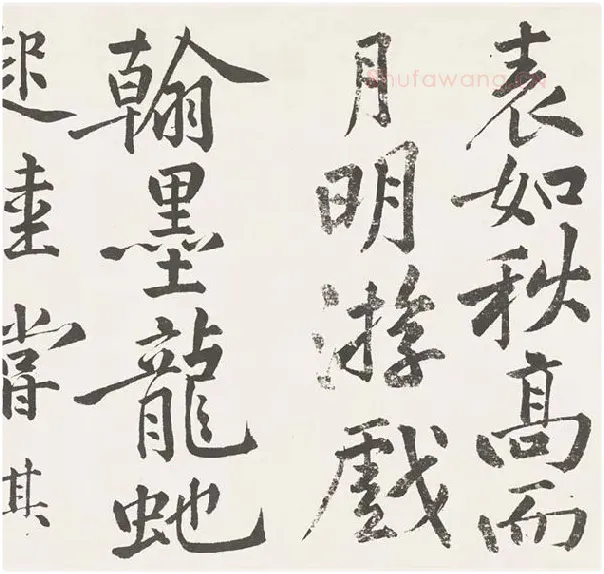 表如秋高而
月明游戲
翰墨龍虵
嘗其